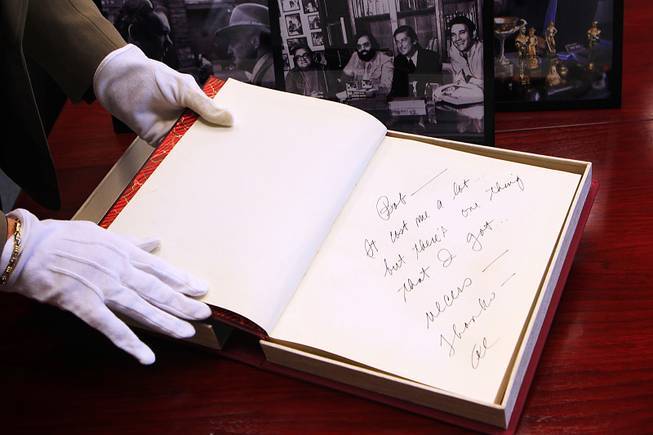 Bob —
It cost me a lot...
but there's one thing
that I got..
ulcers —
Thanks —
Al